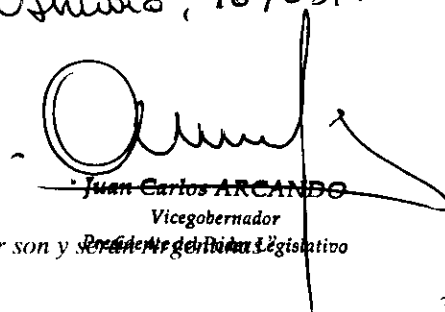 Juan Carlos ARCANDO
Vicegobernador
Presidente del Poder Legislativo
r son y serán Argentinas"